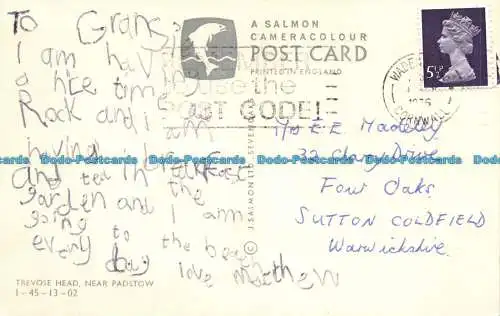 To Grans
I am hav
ing
a nice time
Rock and i am
having breakfast
and tea in the
garden and I am
going to the beach
every day love matthew
TREVOSE HEAD, NEAR PADSTOW
1-45-13-02
A SALMON
CAMERACOLOUR
POST CARD
PRINTED IN ENGLAND
use the
POST CODE!
J. SALMON LTD SEVEN
©
WADE
1976
CORNWALL
5½P
E.E. Madeley
32 Clary Drive
Four Oaks
SUTTON COLDFIELD
Warwickshire
Dodo-Postcards Dodo-Postcards Dodo-Postcards Dodo-Postcards Dodo-Postcards Dodo-Postcards